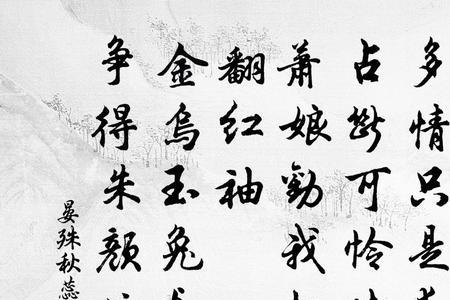 多情只是
占斷可怜
蕭娘勸我
翻红袖
金烏玉兔
争得朱顏
晏殊秋蕊